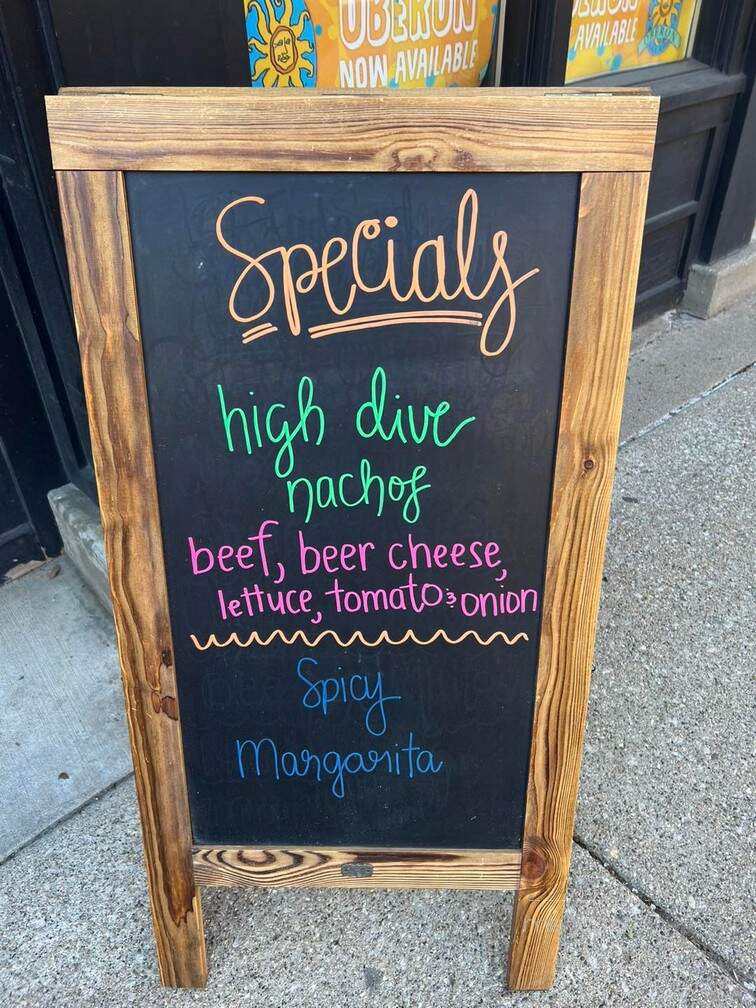 OBERON
NOW AVAILABLE
AVAILABLE
Specials
high dive
nachos
beef, beer cheese,
lettuce, tomato & onion
Spicy
Margarita